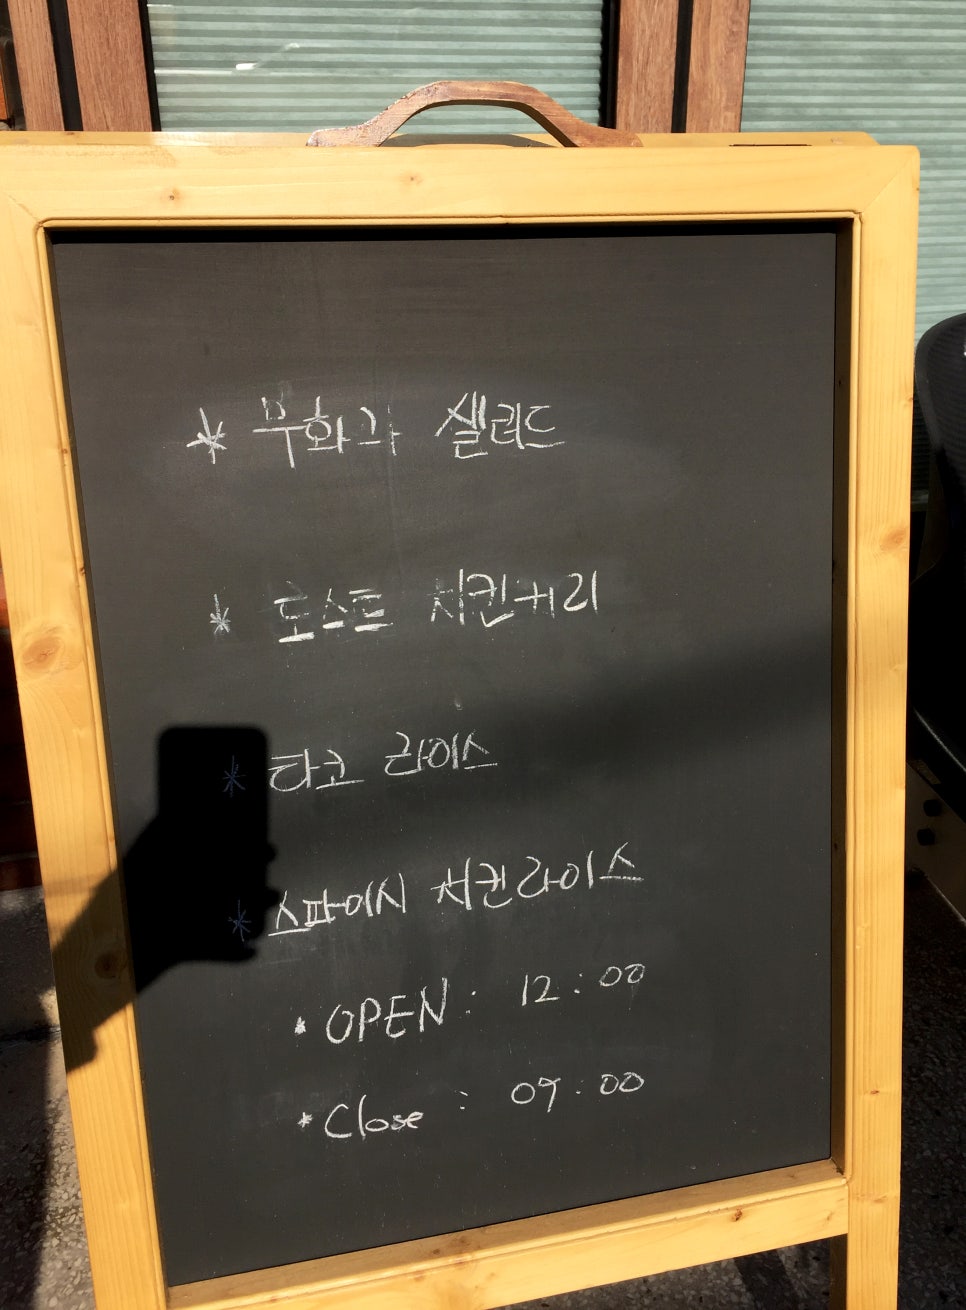 * 무화과 샐러드
* 로스트 치킨커리
* 타코 라이스
* 스파이시 치킨라이스
· OPEN : 12 : 00
* Close : 09 : 00